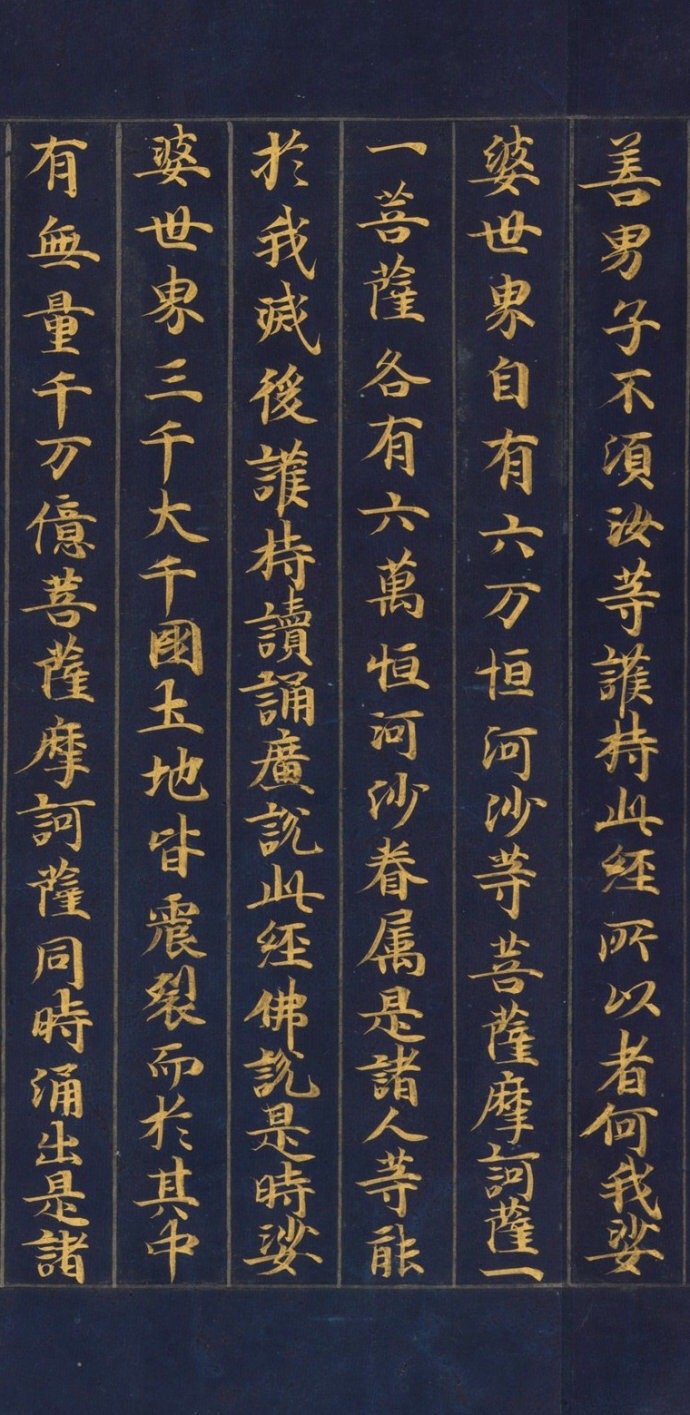 善男子不須汝等護持此經所以者何我娑
婆世界自有六万恒河沙等菩薩摩訶薩一
一菩薩各有六萬恒河沙眷属是諸人等能
於我滅後護持讀誦廣説此經佛説是時娑
婆世界三千大千國土地皆震裂而於其中
有無量千万億菩薩摩訶薩同時涌出是諸